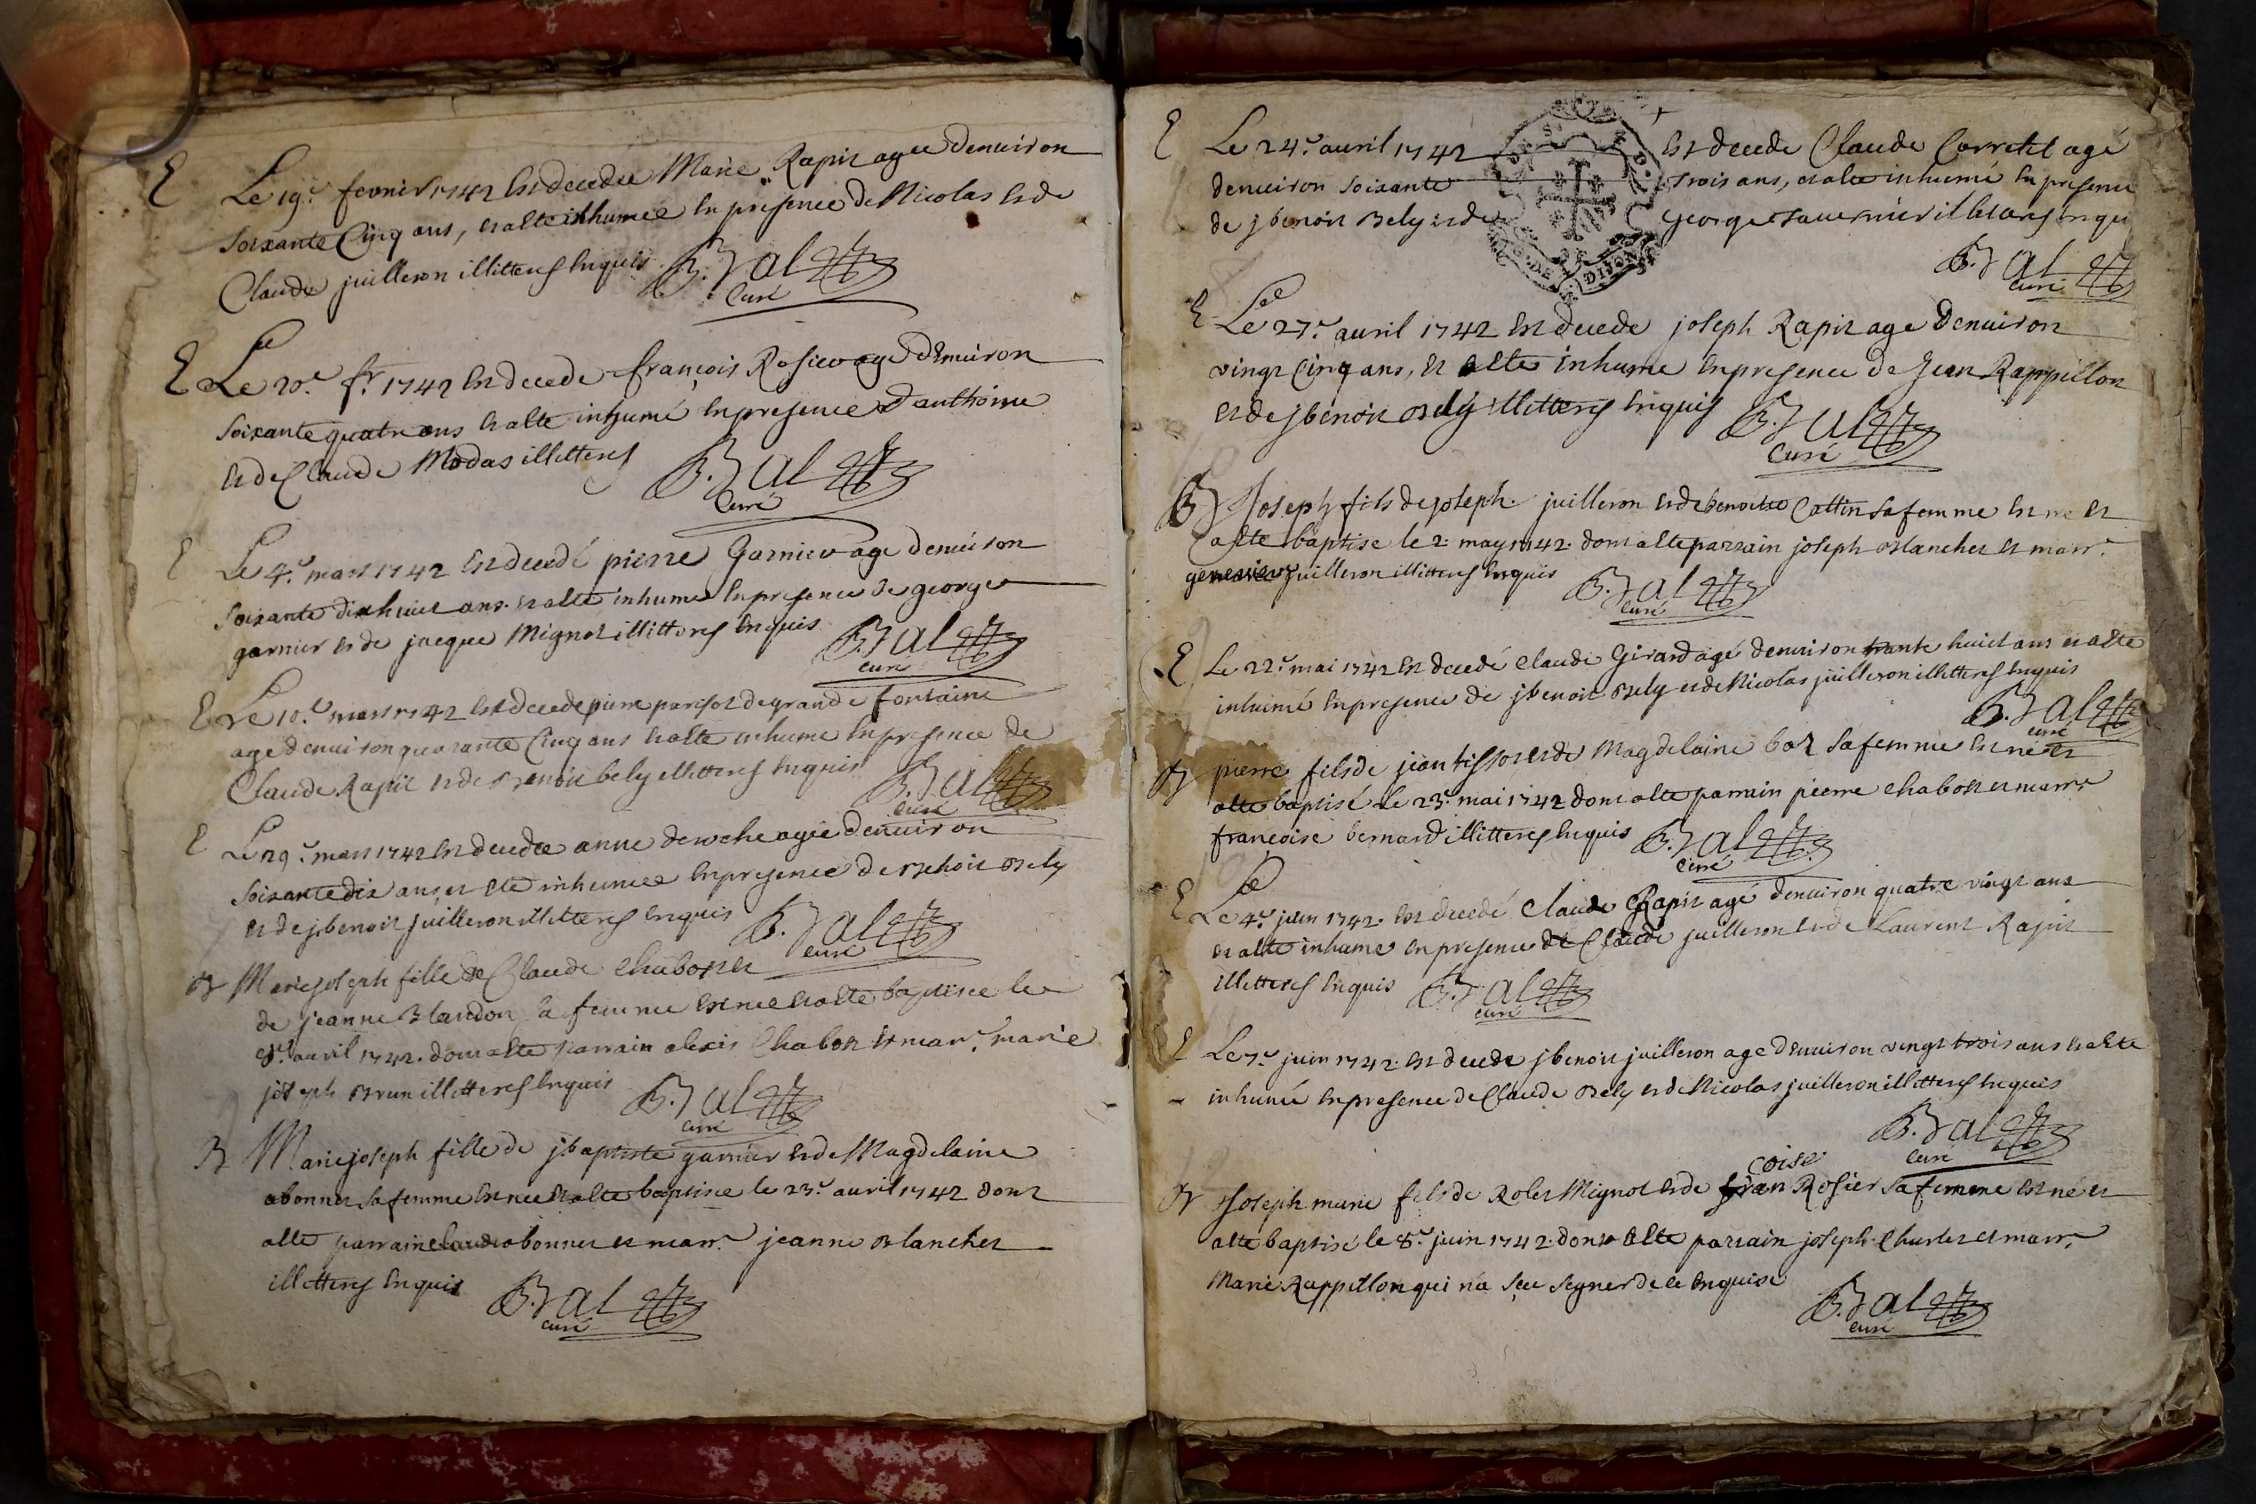 E Le 19.e fevrier 1742 est decedee Marie Rapit agee denuiron
soixante Cinq ans, et a esté inhumée en presence de Nicolas et de
Claude juilleron illitterés enquis B. Jal
Curé
E Le 20.e fr. 1742 est decede françois Rosier age denuiron
soixante quatre ans et a esté inhumé en presence d'anthoine
et de Claude Modas illitterés B. Jal
Curé
E Le 4.e mars 1742 est decedé pierre Garnier age denuiron
soixante dixhuict ans et a esté inhume en presence de george
garnier et de jacque Mignot illitterés enquis B. Jal
curé
E Le 10.e mars 1742 est decede pierre parisot de grande fontaine
age denuiron quarante Cinq ans et a esté inhume en presence de
Claude Rapit et de Benoit bely illitterés enquis B. Jal
curé
E Le 29.e mars 1742 est decedee anne deroche agée denuiron
soixante dix ans et esté inhumée en presence de Benoit Bely
et de jbenoit juilleron illitterés enquis B. Jal
curé
B Marie joseph fille de Claude Chabot et
de jeanne Blandon sa femme est nee et a esté baptisee le
8.e auril 1742. dont a esté parrain alexis Chabot et mar.e marie
joseph Brun illitterés enquis B. Jal
curé
B Marie joseph fille de jbaptiste garnier et de Magdelaine
abonnet sa femme est nee et a esté baptisee le 23.e auril 1742 dont
a esté parrain Claude abonnet et marr.e jeanne Blanchet
illitterés enquis B. Jal
curé
E Le 24.e auril 1742 est decede Claude Corretet agé
denuiron soixante trois ans, et a esté inhumé en presence
de jbenoit Bely et de George tauernier illitterés enqui
B. Jal
curé
E Le 27.e auril 1742 est decede joseph Rapit age denuiron
vingt Cinq ans, et a esté inhume en presence de Jean Rappillon
et de jbenoit Bely illitterés enquis B. Jal
Curé
B Joseph fils de joseph juilleron et de benoite Cattin sa femme est né et
a esté baptise le 2. may 1742. dont a esté parrain joseph Blanchet et marr.e
genevieve juilleron illitterés enquis B. Jal
curé
E Le 22.e mai 1742 est decedé Claude Girard agé denuiron trante huict ans et a esté
inhumé en presence de jbenoit Bely et de Nicolas juilleron illitterés enquis
B. Jal
curé
B pierre fils de jean tissot et de Magdelaine bot sa femme est né et
a esté baptisé le 23.e mai 1742 dont a esté parrain pierre Chabot et marr.e
françoise bernard illitterés enquis B. Jal
curé
E Le 4.e juin 1742. est decedé Claude Rapit agé denuiron quatre vingt ans
et a esté inhume en presence de Claude juilleron et de Laurent Rapit
illitterés enquis B. Jal
curé
E Le 7.e juin 1742. est decede jbenoit juilleron age denuiron vingt trois ans et a esté
inhumé en presence de Claude Bely et de Nicolas juilleron illitterés enquis
B. Jal
curé
coise
B Joseph marie fils de Robet Mignot et de fran Rosier sa femme est né et
a esté baptisé le 8.e juin 1742. dont a esté parrain joseph Charlet et marr.e
Marie Rappillon qui n'a sceu segner de ce enquise
B. Jal
curé